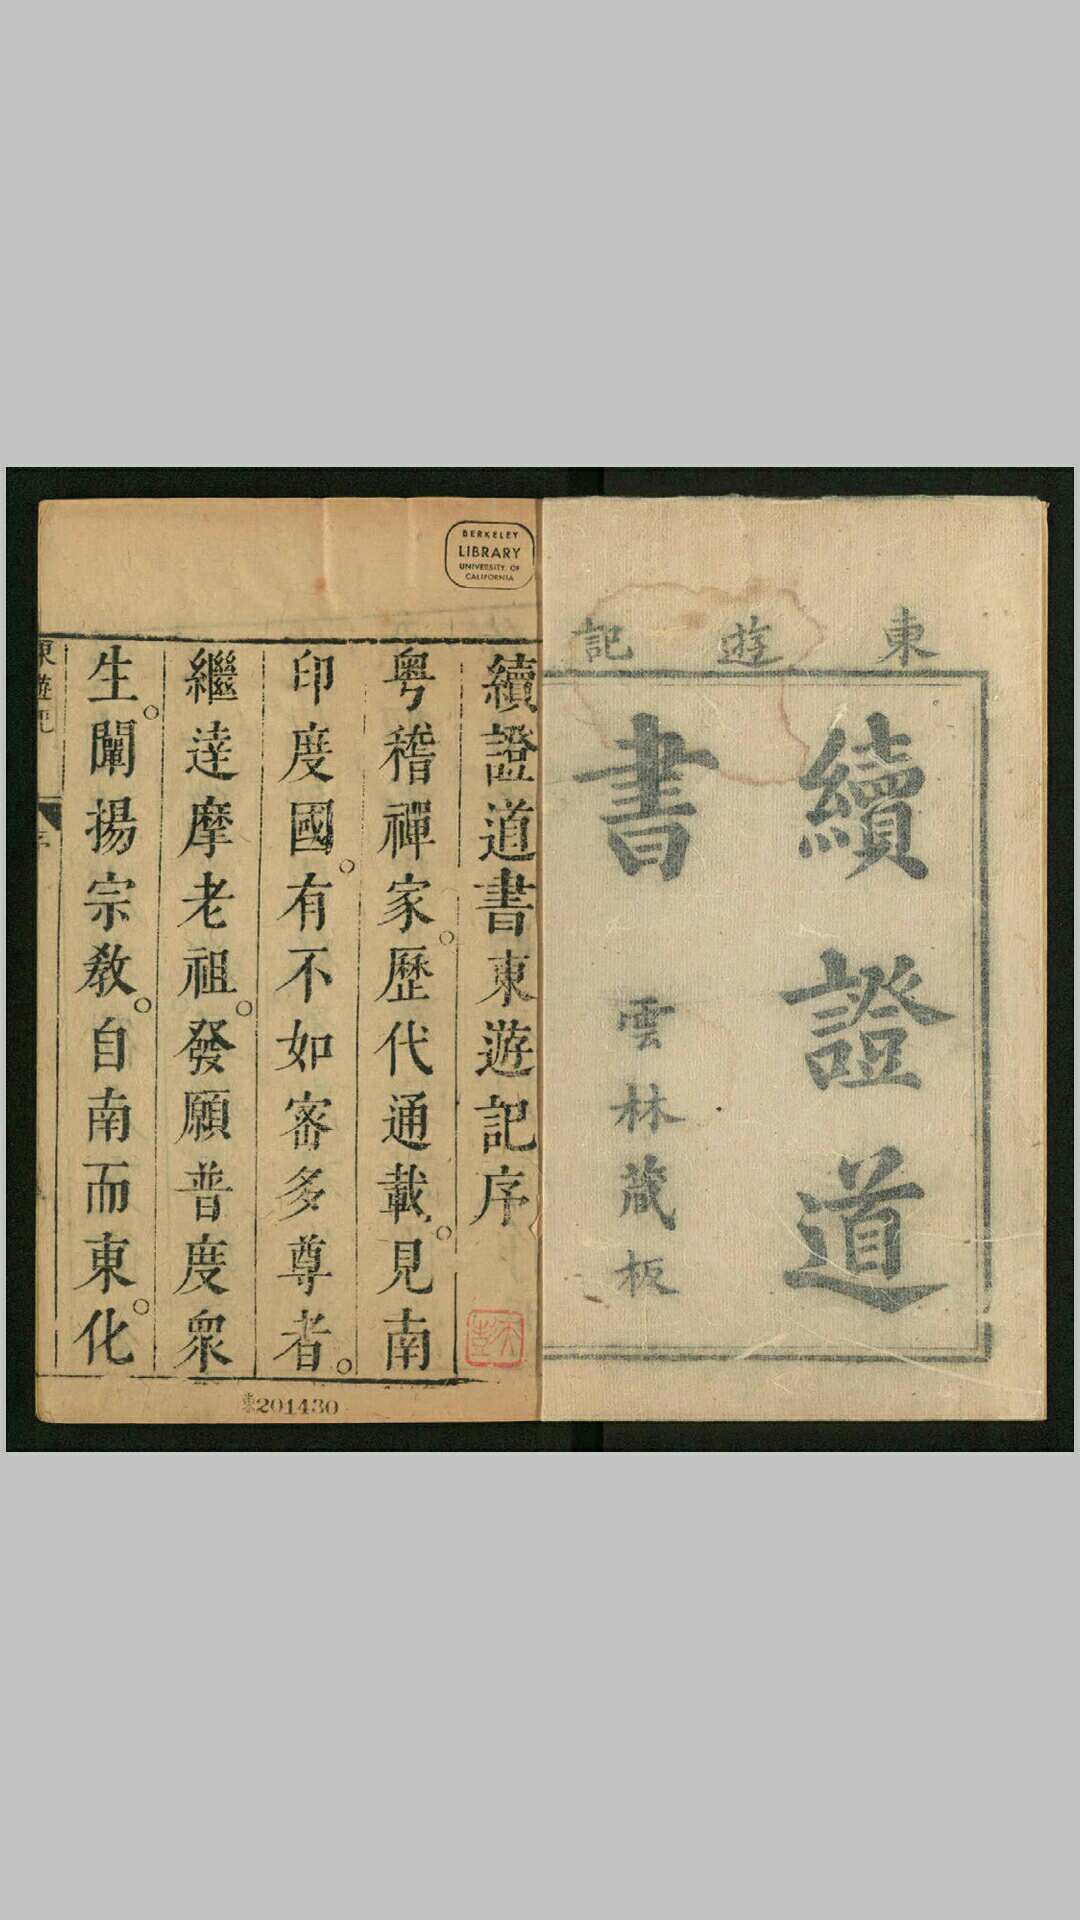 東遊記
續證道
書
雲林藏板
BERKELEY
LIBRARY
UNIVERSITY OF
CALIFORNIA
續證道書東遊記序
粤稽禪家。歷代通載。見南
印度國。有不如宻多尊者。
繼達摩老祖。發願普度衆
生。闡揚宗教。自南而東。化
東遊記
東201430